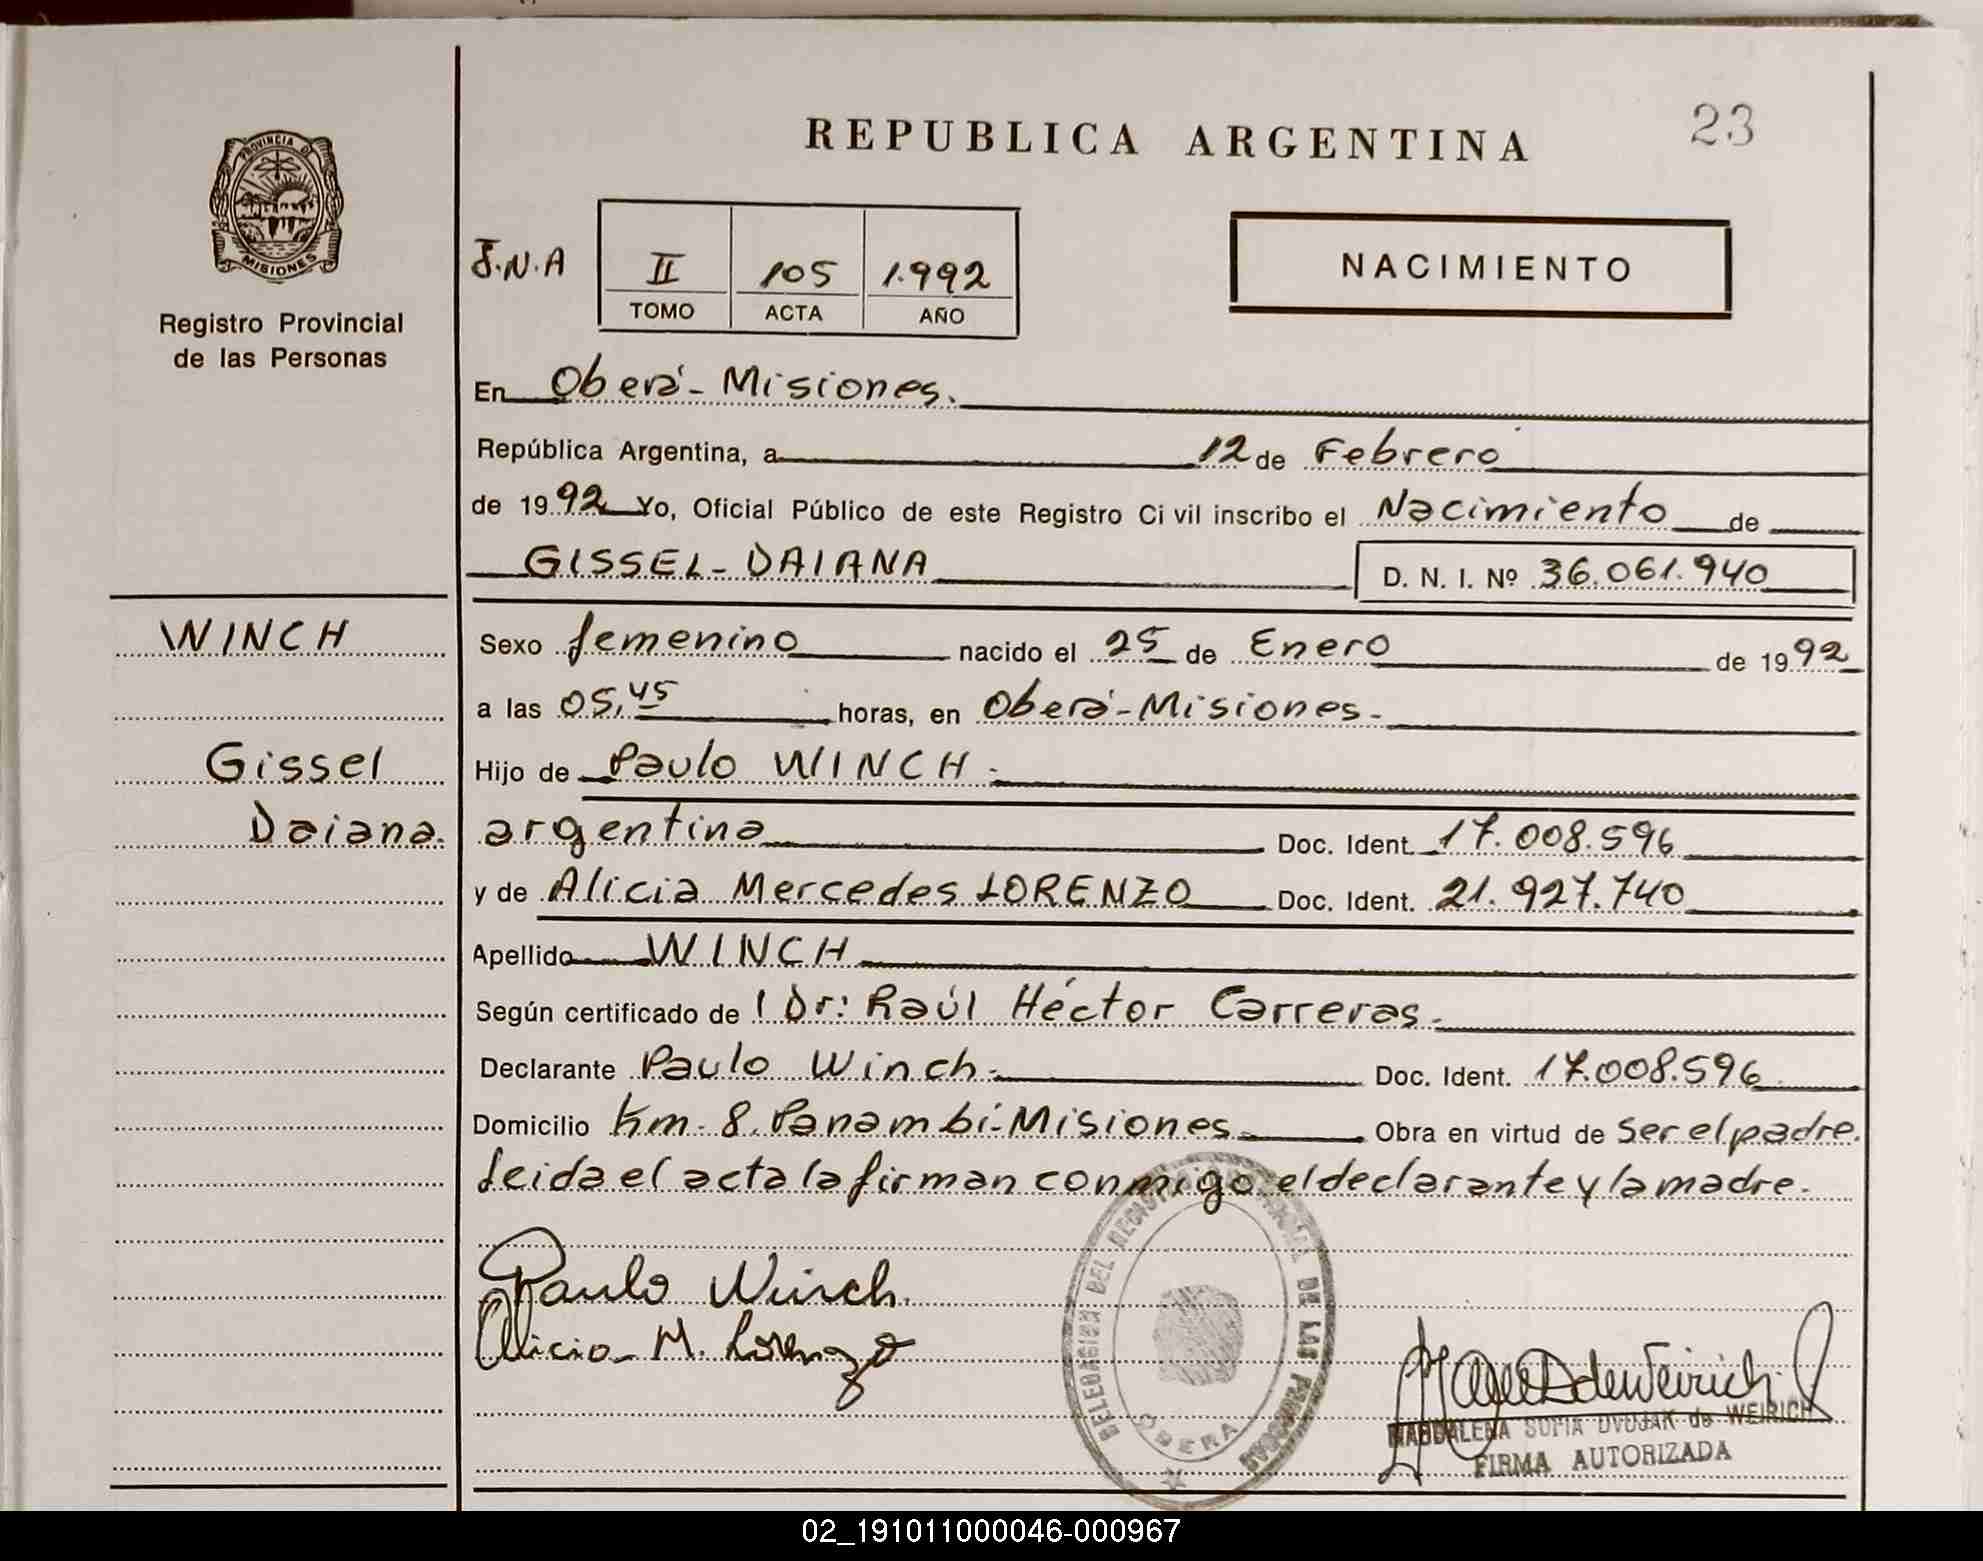 REPUBLICA ARGENTINA
23
PROVINCIA D
MISIONES
Registro Provincial
de las Personas
J.N.A
II 105 1.992
TOMO ACTA AÑO
NACIMIENTO
En Oberá - Misiones.
República Argentina, a 12 de Febrero
de 1992 Yo, Oficial Público de este Registro Civil inscribo el Nacimiento de
GISSEL - DAIANA D. N. I. Nº 36.061.940
WINCH
Sexo femenino nacido el 25 de Enero de 1992
a las 05,45 horas, en Oberá - Misiones -
Gissel
Hijo de Paulo WINCH -
Daiana.
argentina Doc. Ident. 17.008.596
y de Alicia Mercedes LORENZO Doc. Ident. 21.927.740
Apellido WINCH
Según certificado de l Dr: Raúl Héctor Carreras -
Declarante Paulo Winch - Doc. Ident. 17.008.596
Domicilio Km - 8. Panambí - Misiones Obra en virtud de ser el padre.
Leida el acta la firman conmigo el declarante y la madre.
Paulo Winch.
Alicia M. Lorenzo
DELEGACION DEL REGISTRO PROVINCIAL DE LAS PERSONAS
OBERA
MAGDALENA SOFIA DVOJAK de WEIRICH
FIRMA AUTORIZADA
02_191011000046-000967